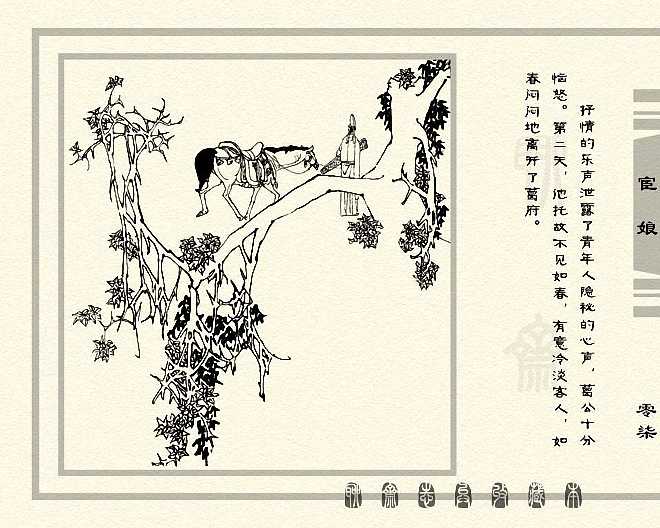 抒情的乐声泄露了青年人隐秘的心声，葛公十分
恼怒。第二天，他托故不见如春，有意冷淡客人，如
春闷闷地离开了葛府。
宦娘
零柒